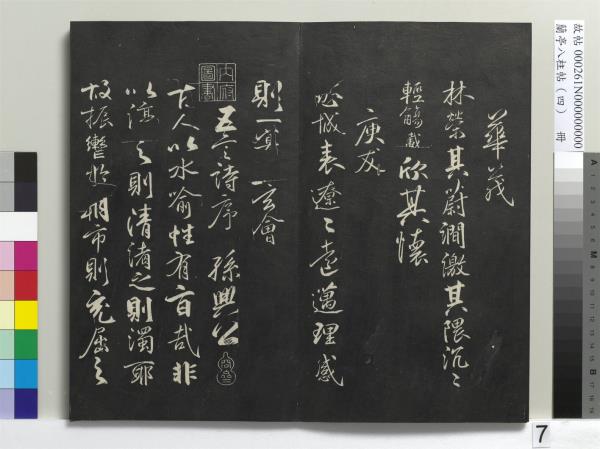 故帖 000261N000000000
蘭亭八柱帖（四） 冊
華茂
林榮其蔚澗激其隈汎〻
輕觴載欣其懷
庾友
域表遼〻遠邁理感
則一冥玄會
五言詩序 孫興公
古人以水喻性有旨哉非
以渟之則清淆之則濁耶
故振轡於朝市則充屈之
內府圖書
7